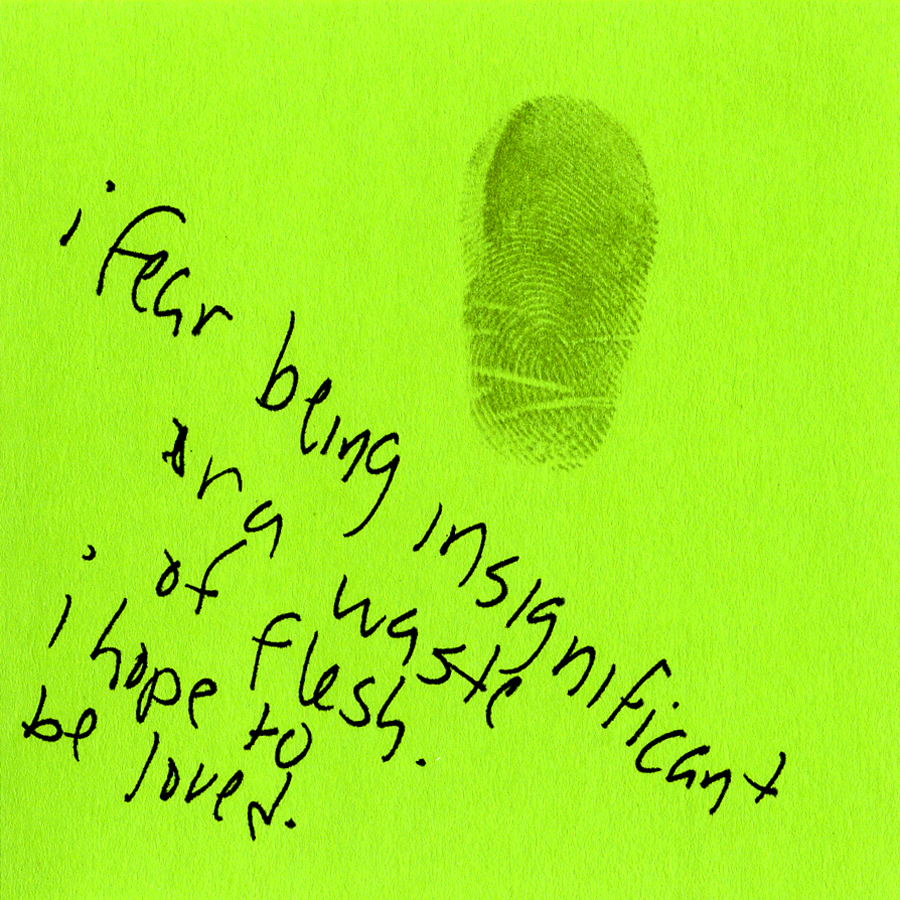 i fear being insignificant
or a waste
of flesh.
i hope to
be loved.